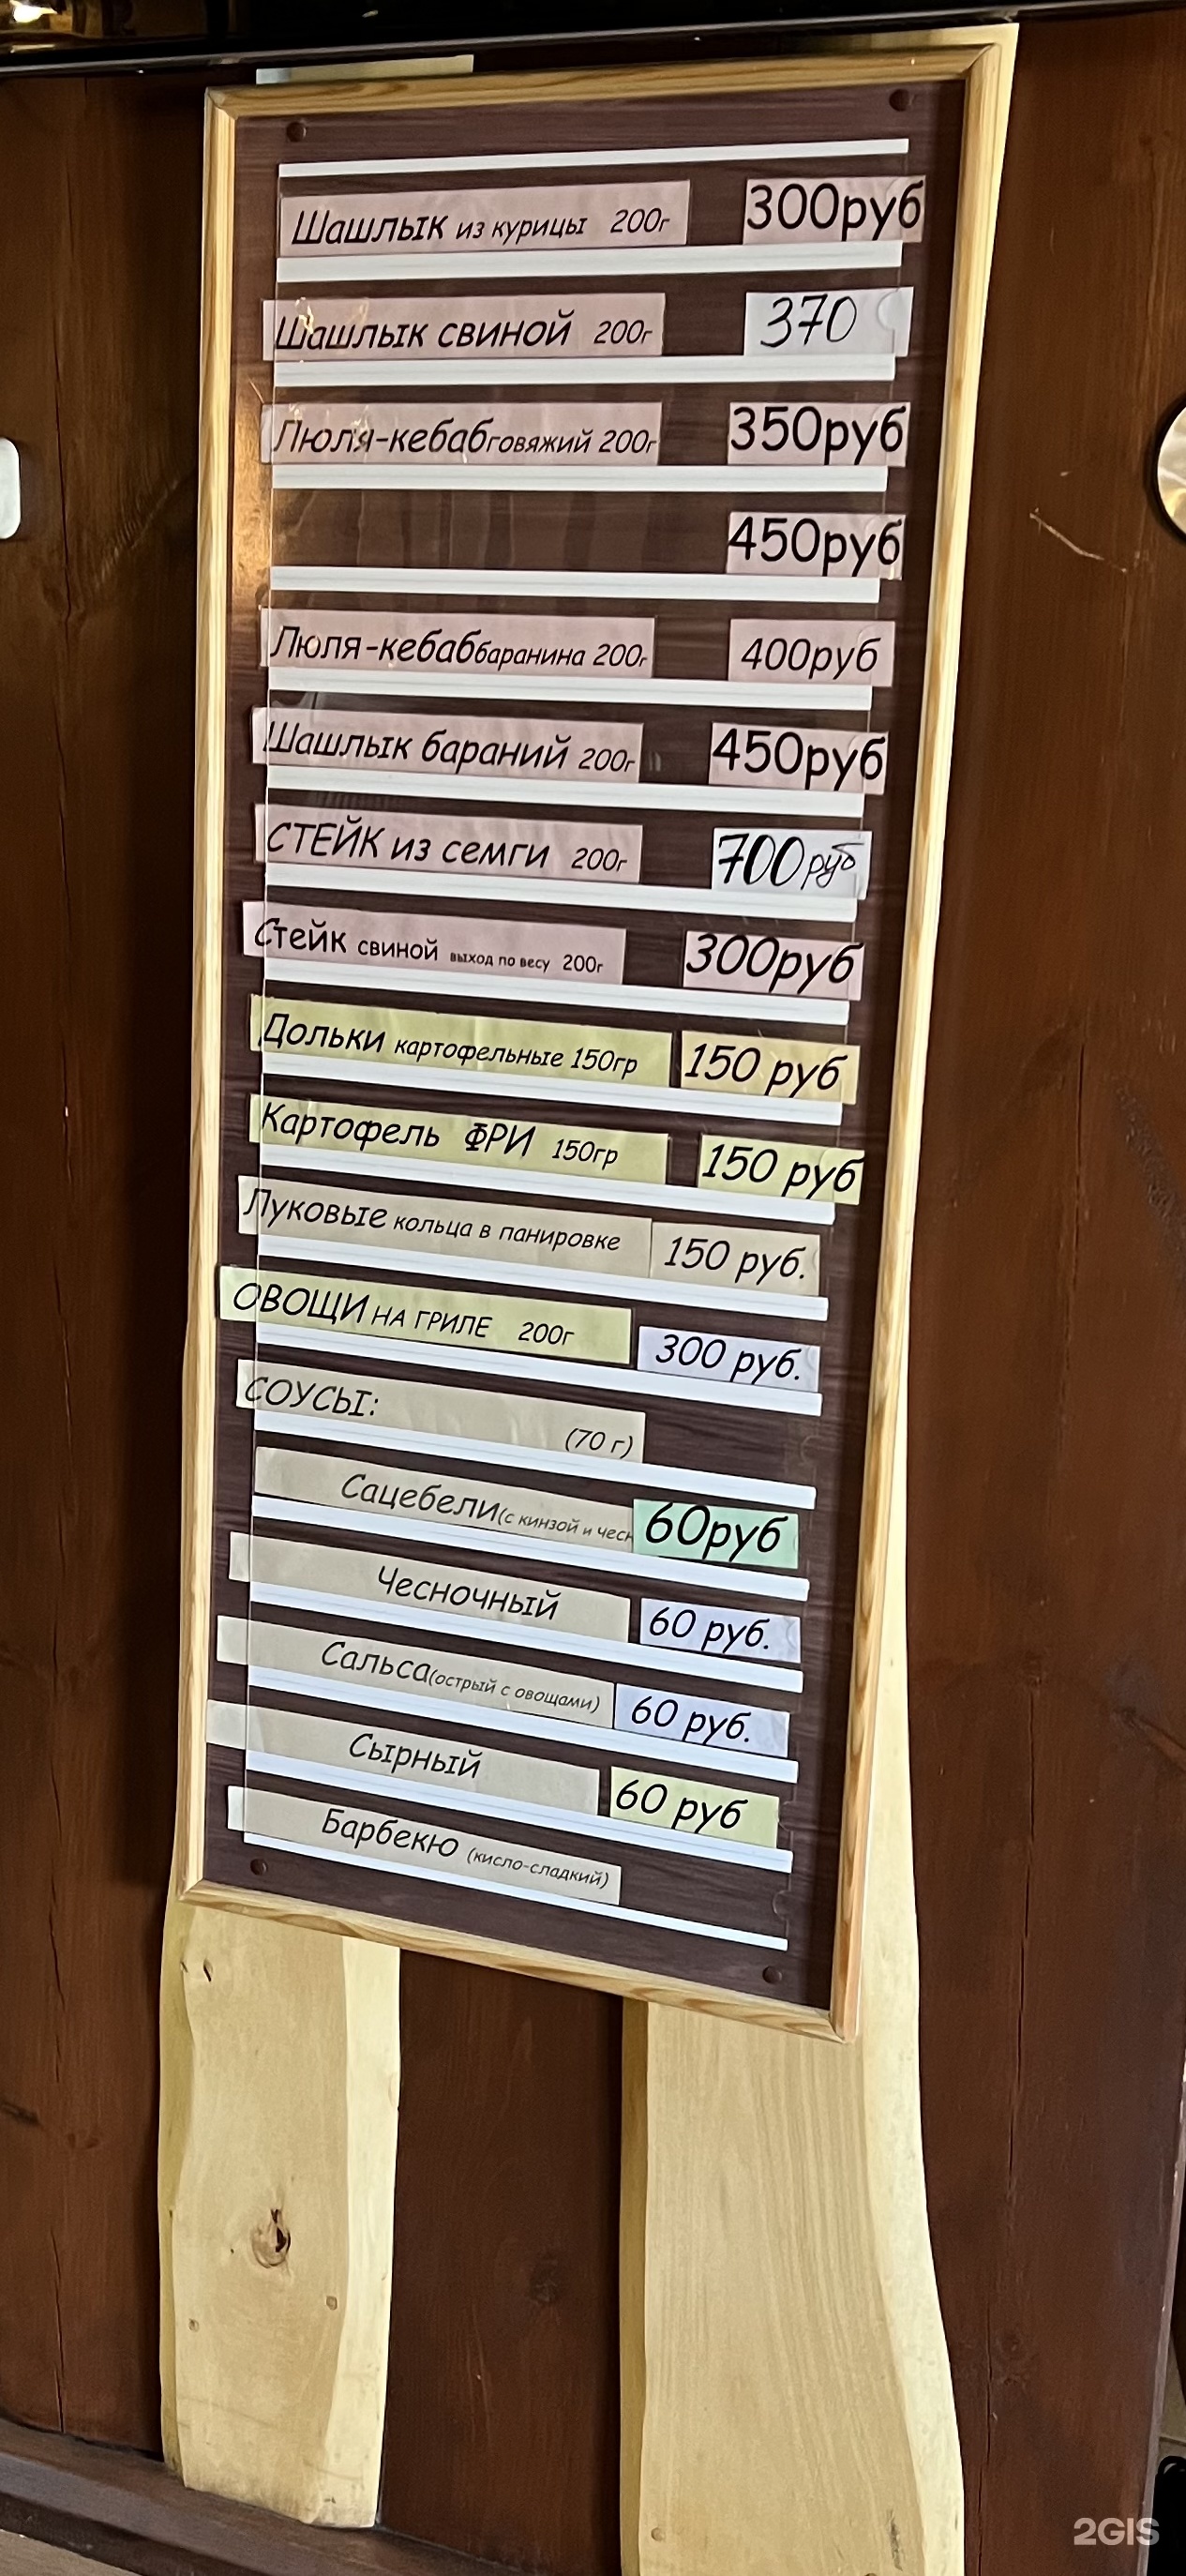 Шашлык из курицы 200г 300руб
Шашлык свиной 200г 370
Люля-кебаб говяжий 200г 350руб
450руб
Люля-кебаб баранина 200г 400руб
Шашлык бараний 200г 450руб
СТЕЙК из семги 200г 700 руб
Стейк свиной выход по весу 200г 300руб
Дольки картофельные 150гр 150 руб
Картофель ФРИ 150гр 150 руб
Луковые кольца в панировке 150 руб.
ОВОЩИ НА ГРИЛЕ 200г 300 руб.
СОУСЫ: (70 г)
Сацебели (с кинзой и чесн 60руб
Чесночный 60 руб.
Сальса (острый с овощами) 60 руб.
Сырный 60 руб
Барбекю (кисло-сладкий)
2GIS